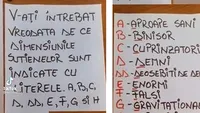 V-AȚI ÎNTREBAT
VREODATĂ DE CE
DIMENSIUNILE
SUTIENELOR SUNT
INDICATE CU
LITERELE. A, B, C,
D, DD, E, F, G ȘI H
A - APROAPE SANI
B - BINIȘOR
C - CUPRINZĂTORI
D - DEMNI
DD - DEOSEBIT DE DEMNI
E - ENORMI
F - FALȘI
G - GRAVITAȚIONALI